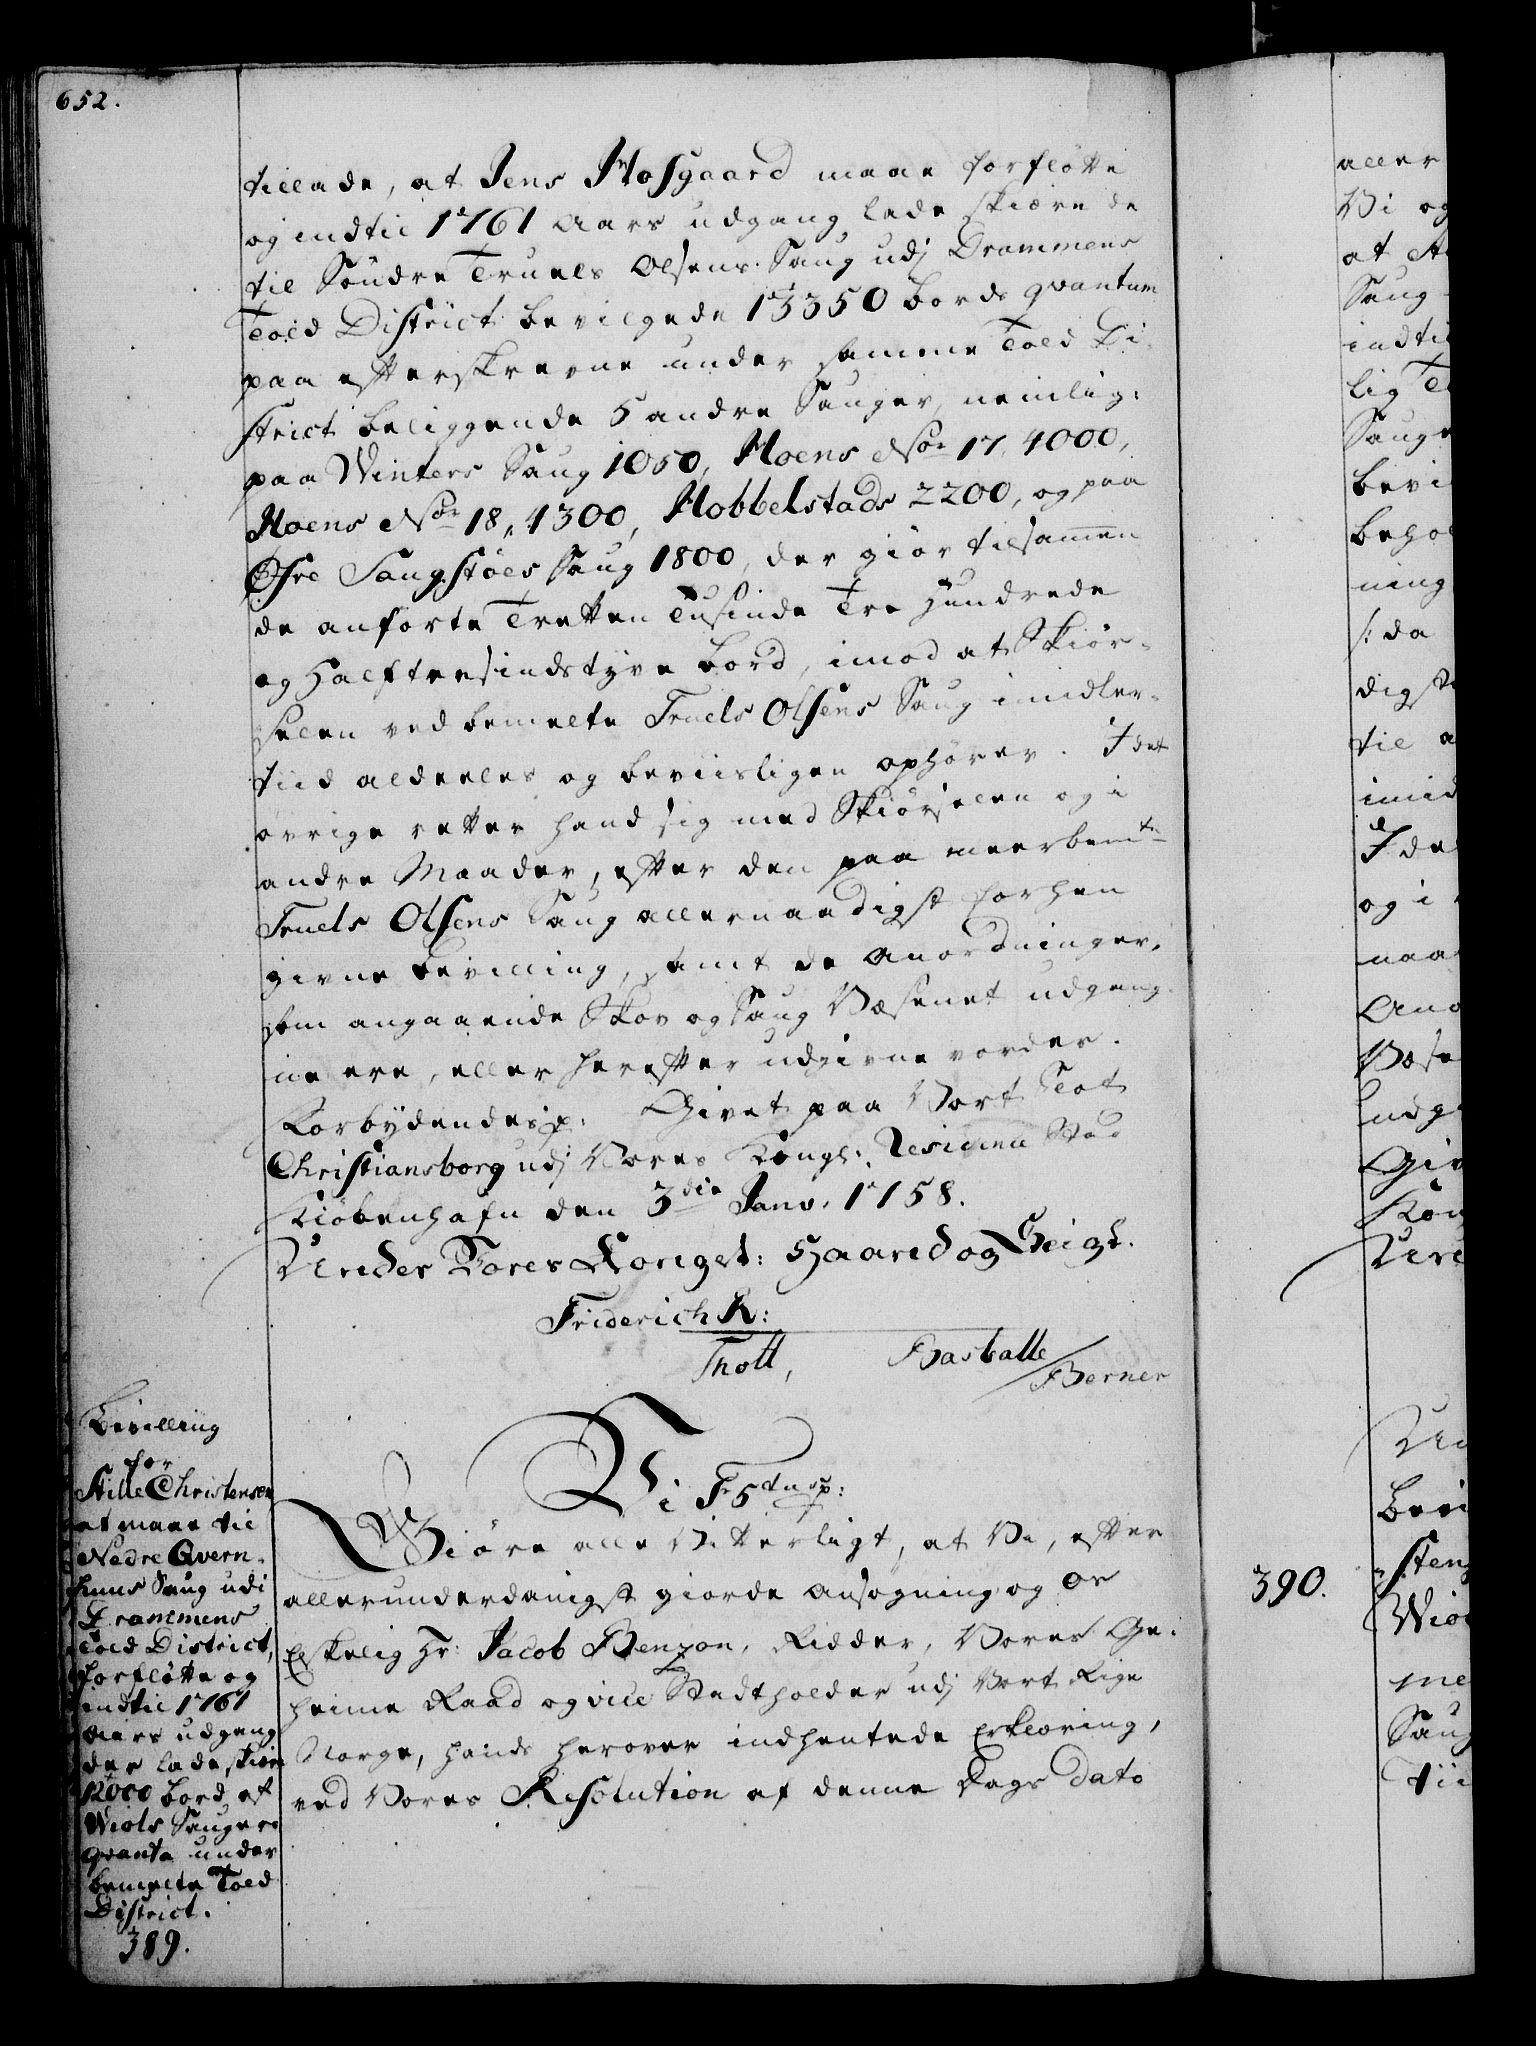 652.
tillade, at Jens Hofgaard maae forflötte
og indtil 1761 Aars udgang lade skiære de
til Söndre Truels Olsens Saug udj Drammens
Told District bevilgede 13350 bords qvantum
paa efterskrevne under samme Told Di-
strict beliggende 5 andre Sauger, nemlig:
paa Winters Saug 1050, Hoens No 17, 4000,
Hoens No 18, 4300, Hobbelstads 2200, og paa
Öfre Saugstöes Saug 1800, der giör tilsammen
de anförte Tretten Tusinde Tre Hundrede
og Halftresindstyve bord, imod at Skiör-
selen ved bemelte Truels Olsens Saug imidler-
tiid aldeeles og beviisligen ophörer. I det
övrige retter hand sig med Skiörselen og i
andre Maader, efter den paa meerbemte
Truels Olsens Saug allernaadigst forhen
givne bevilling, samt de Anordninger,
som angaaende Skov og Saug Væsenet udgang-
ne ere, eller herefter udgivne vorder.
Forbydendes p: Givet paa Vort Slot
Christiansborg udj Vores Kongl: Residence Stad
Kiöbenhafn den 3die Janv. 1758.
Under Vores Kongel: Haand og Seigl.
Friderich R:
Thott, Basballe
Berner
Bevilling
for
Stille Christensen
at maae til
Nedre Qvern-
huus Saug udi
Drammens
Told District,
forflötte og
indtil 1761
Aars udgang
der lade skiære
12000 bord af
Wiols Sauger
qvanta under
bemelte Told
District.
389.
Vi F5tus p:
Giöre alle Vitterligt, at Vi, efter
allerunderdanigst giorde ansögning og Os
Elskelig Hr: Jacob Benzon, Ridder, Vores Ge-
heime Raad og vice Stadtholder udj Vort Rige
Norge, hands herover indhentede Erklæring,
ved Vores Resolution af denne Dags Dato
aller
Vi og
at
Saug
indti
lig
Sauge
bevi
behol
ning
/: da
digst
til a
imid
I de
og i
naa
Ano
Væse
udg
Giv
Kon
Und
390.
Bevi
Wiol
me
Saug
Tii